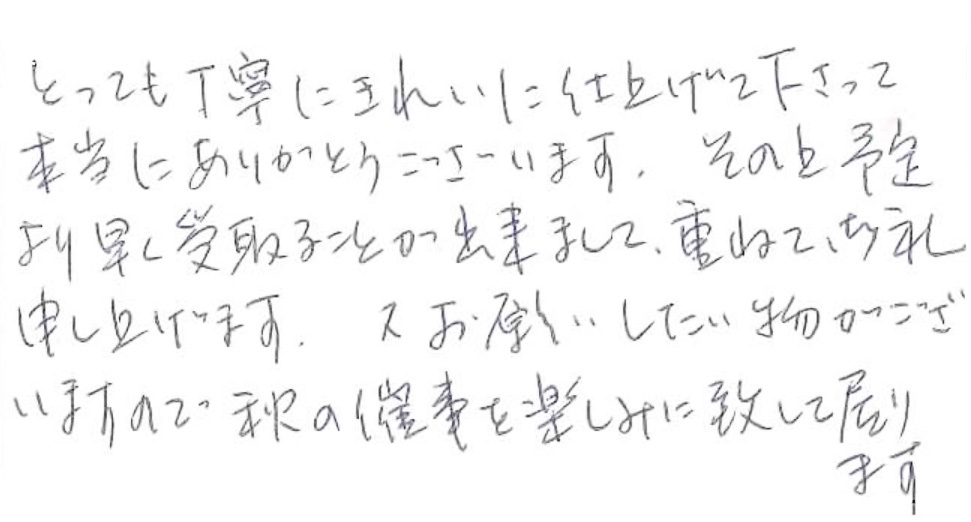 とっても丁寧にきれいに仕上げて下さって
本当にありがとうございます. その上予定
より早く受取ることが出来まして、重ねて、お礼
申し上げます. 又お願いしたい物がござ
いますので秋の催事を楽しみに致して居り
ます